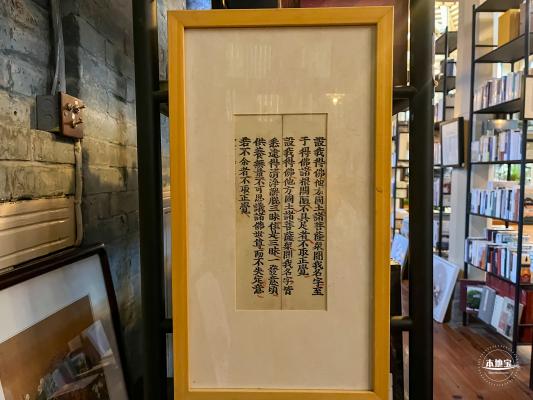 設我得佛他方國土諸菩薩衆聞我名字至
于得佛諸根闕陋不具足者不取正覺
設我得佛他方國土諸菩薩衆聞我名字皆
悉逮得清淨解脫三昧住是三昧一發意頃
供養無量不可思議諸佛世尊而不失定意
若不尒者不取正覺
本地宝